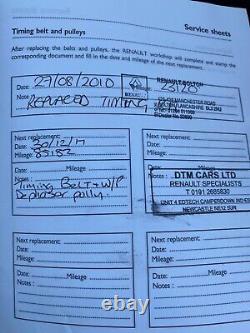 Timing belt and pulleys
Service sheets
After replacing the belts and pulleys, the RENAULT workshop will complete and stamp the corresponding document and fill in the date and mileage of the next replacement.
Date: 27/08/2010
23120
RENAULT BOLTON
MANCHESTER ROAD
Notes:
REPLACED TIMING
Next replacement:
Date: 30/12/17
Mileage: 83152
Notes:
Timing Belt + W/P
Dephaser pulley.
Next replacement:
Date:
Mileage:
Date: Mileage
DTM CARS LTD
RENAULT SPECIALISTS
T 0191 2685830
NEWCASTLE NE12 5UN
Next replacement:
Date:
Mileage:
Next replacement:
Date:
Mileage:
Date: Mileage
Notes:
Date: Mileage
Notes: